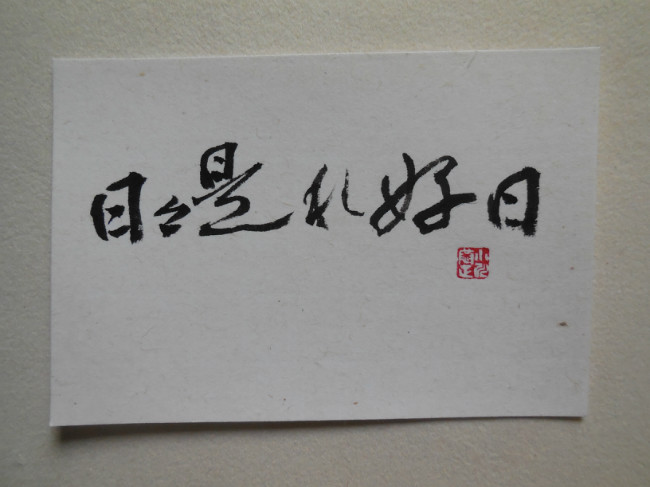 日々是れ好日